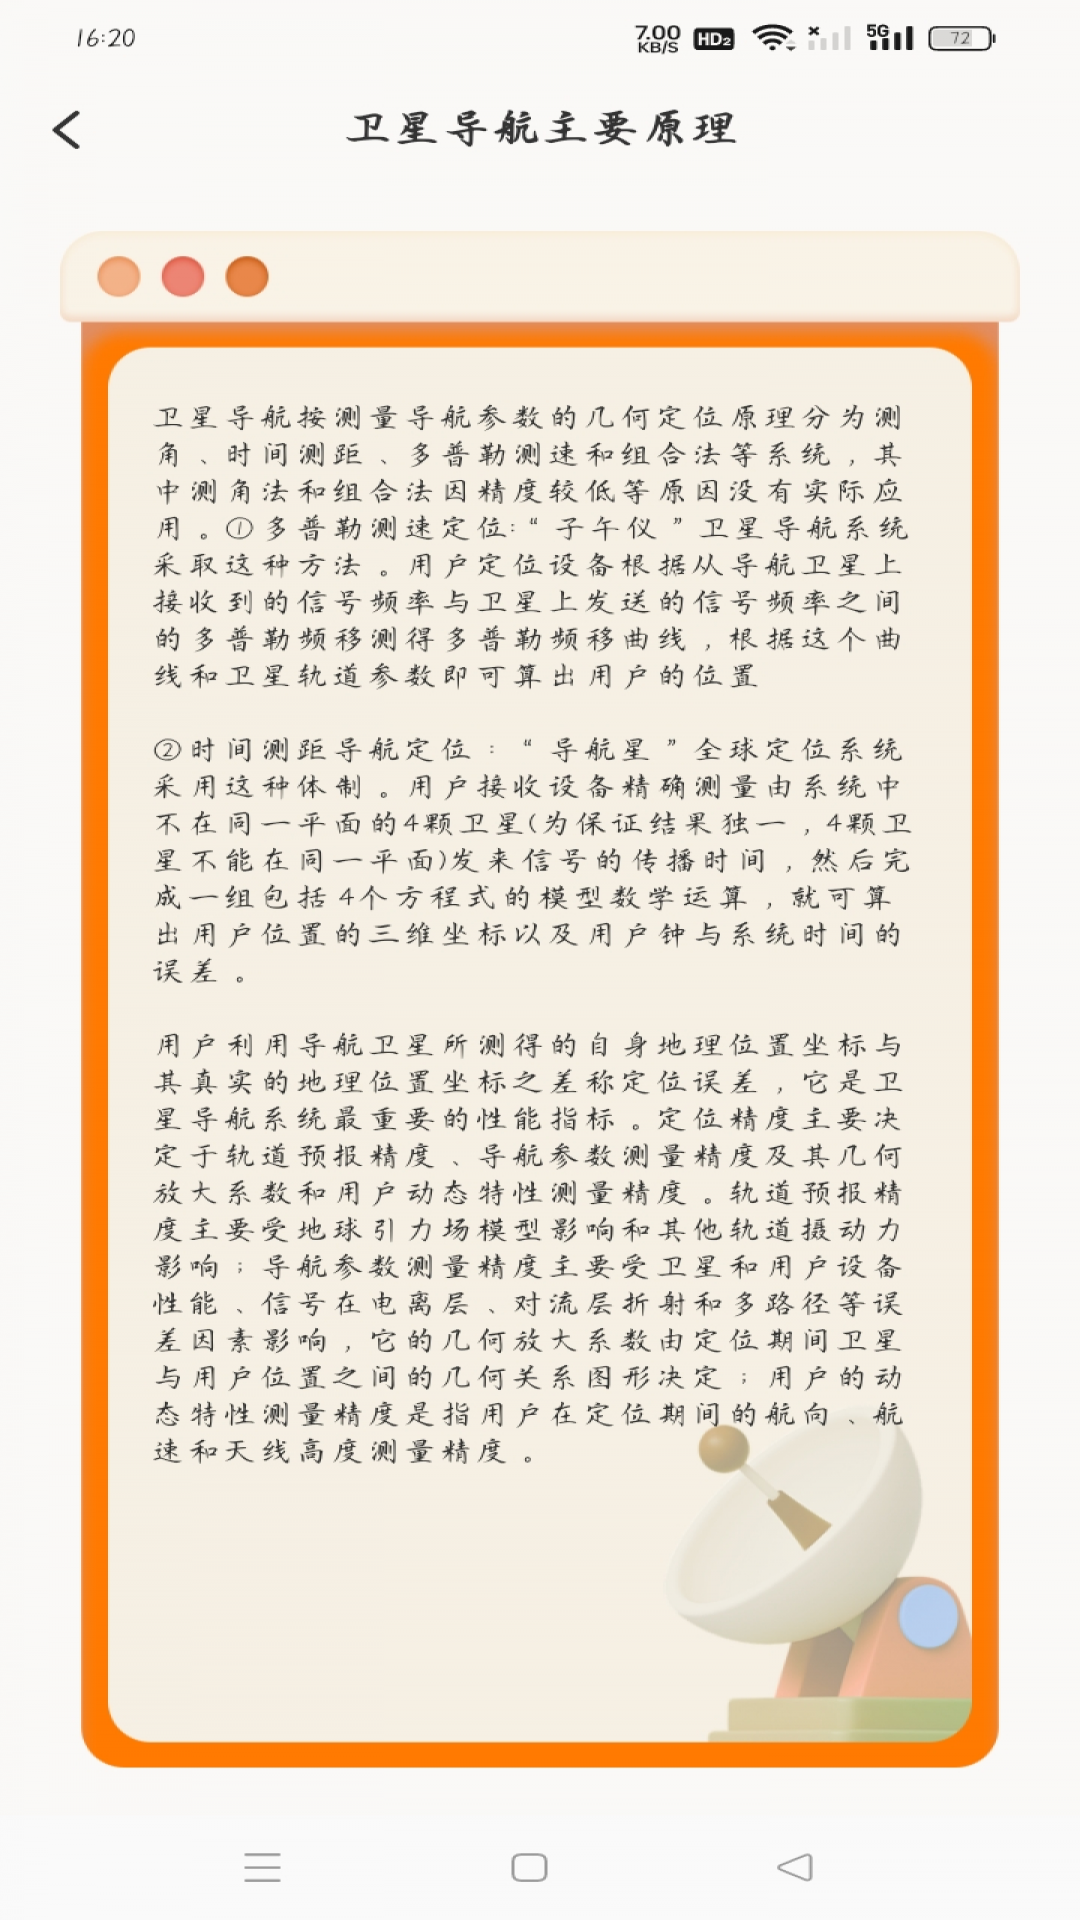 16:20
7.00
KB/S
HD2
5G
72
卫星导航主要原理
卫星导航按测量导航参数的几何定位原理分为测
角、时间测距、多普勒测速和组合法等系统，其
中测角法和组合法因精度较低等原因没有实际应
用。①多普勒测速定位:“子午仪”卫星导航系统
采取这种方法。用户定位设备根据从导航卫星上
接收到的信号频率与卫星上发送的信号频率之间
的多普勒频移测得多普勒频移曲线，根据这个曲
线和卫星轨道参数即可算出用户的位置
②时间测距导航定位：“导航星”全球定位系统
采用这种体制。用户接收设备精确测量由系统中
不在同一平面的4颗卫星(为保证结果独一，4颗卫
星不能在同一平面)发来信号的传播时间，然后完
成一组包括4个方程式的模型数学运算，就可算
出用户位置的三维坐标以及用户钟与系统时间的
误差。
用户利用导航卫星所测得的自身地理位置坐标与
其真实的地理位置坐标之差称定位误差，它是卫
星导航系统最重要的性能指标。定位精度主要决
定于轨道预报精度、导航参数测量精度及其几何
放大系数和用户动态特性测量精度。轨道预报精
度主要受地球引力场模型影响和其他轨道摄动力
影响；导航参数测量精度主要受卫星和用户设备
性能、信号在电离层、对流层折射和多路径等误
差因素影响，它的几何放大系数由定位期间卫星
与用户位置之间的几何关系图形决定；用户的动
态特性测量精度是指用户在定位期间的航向、航
速和天线高度测量精度。